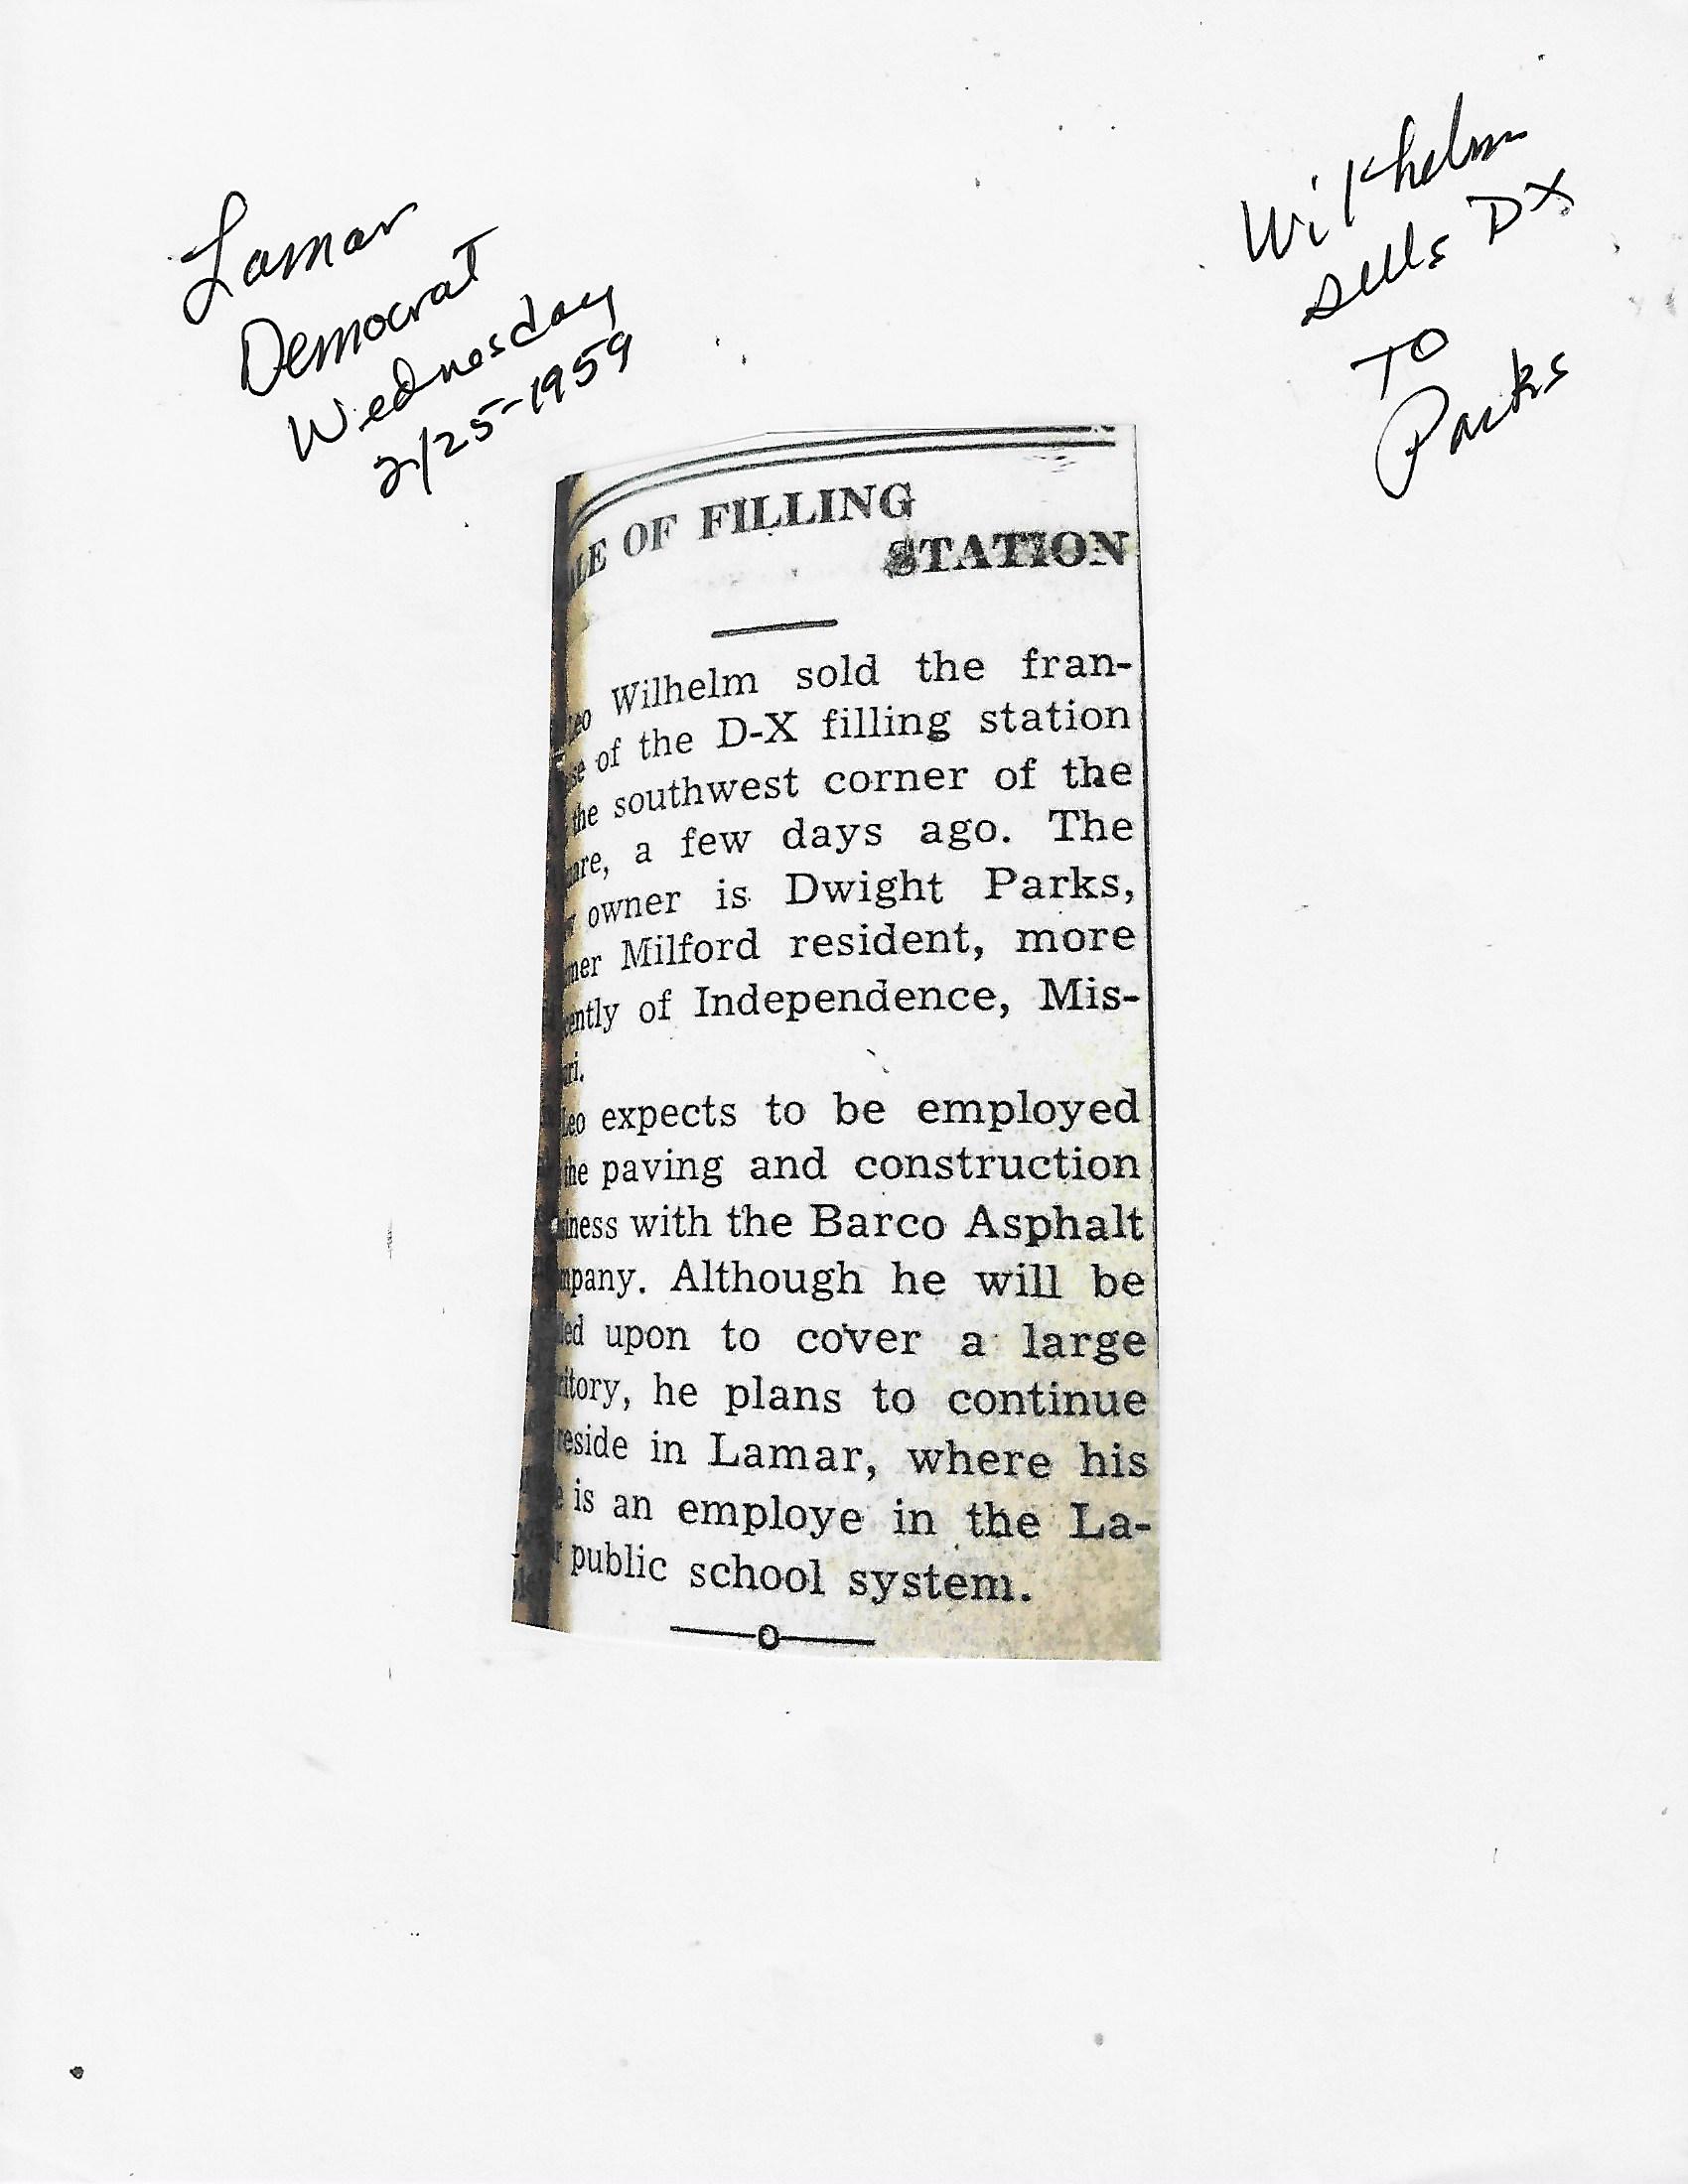 Lamar
Democrat
Wednesday
2/25-1959
Wilhelm
sells DX
TO
Parks
LE OF FILLING
STATION
Leo Wilhelm sold the fran-
se of the D-X filling station
the southwest corner of the
are, a few days ago. The
owner is Dwight Parks,
mer Milford resident, more
ently of Independence, Mis-
uri.
Leo expects to be employed
the paving and construction
iness with the Barco Asphalt
mpany. Although he will be
led upon to cover a large
ritory, he plans to continue
reside in Lamar, where his
e is an employe in the La-
r public school system.
o